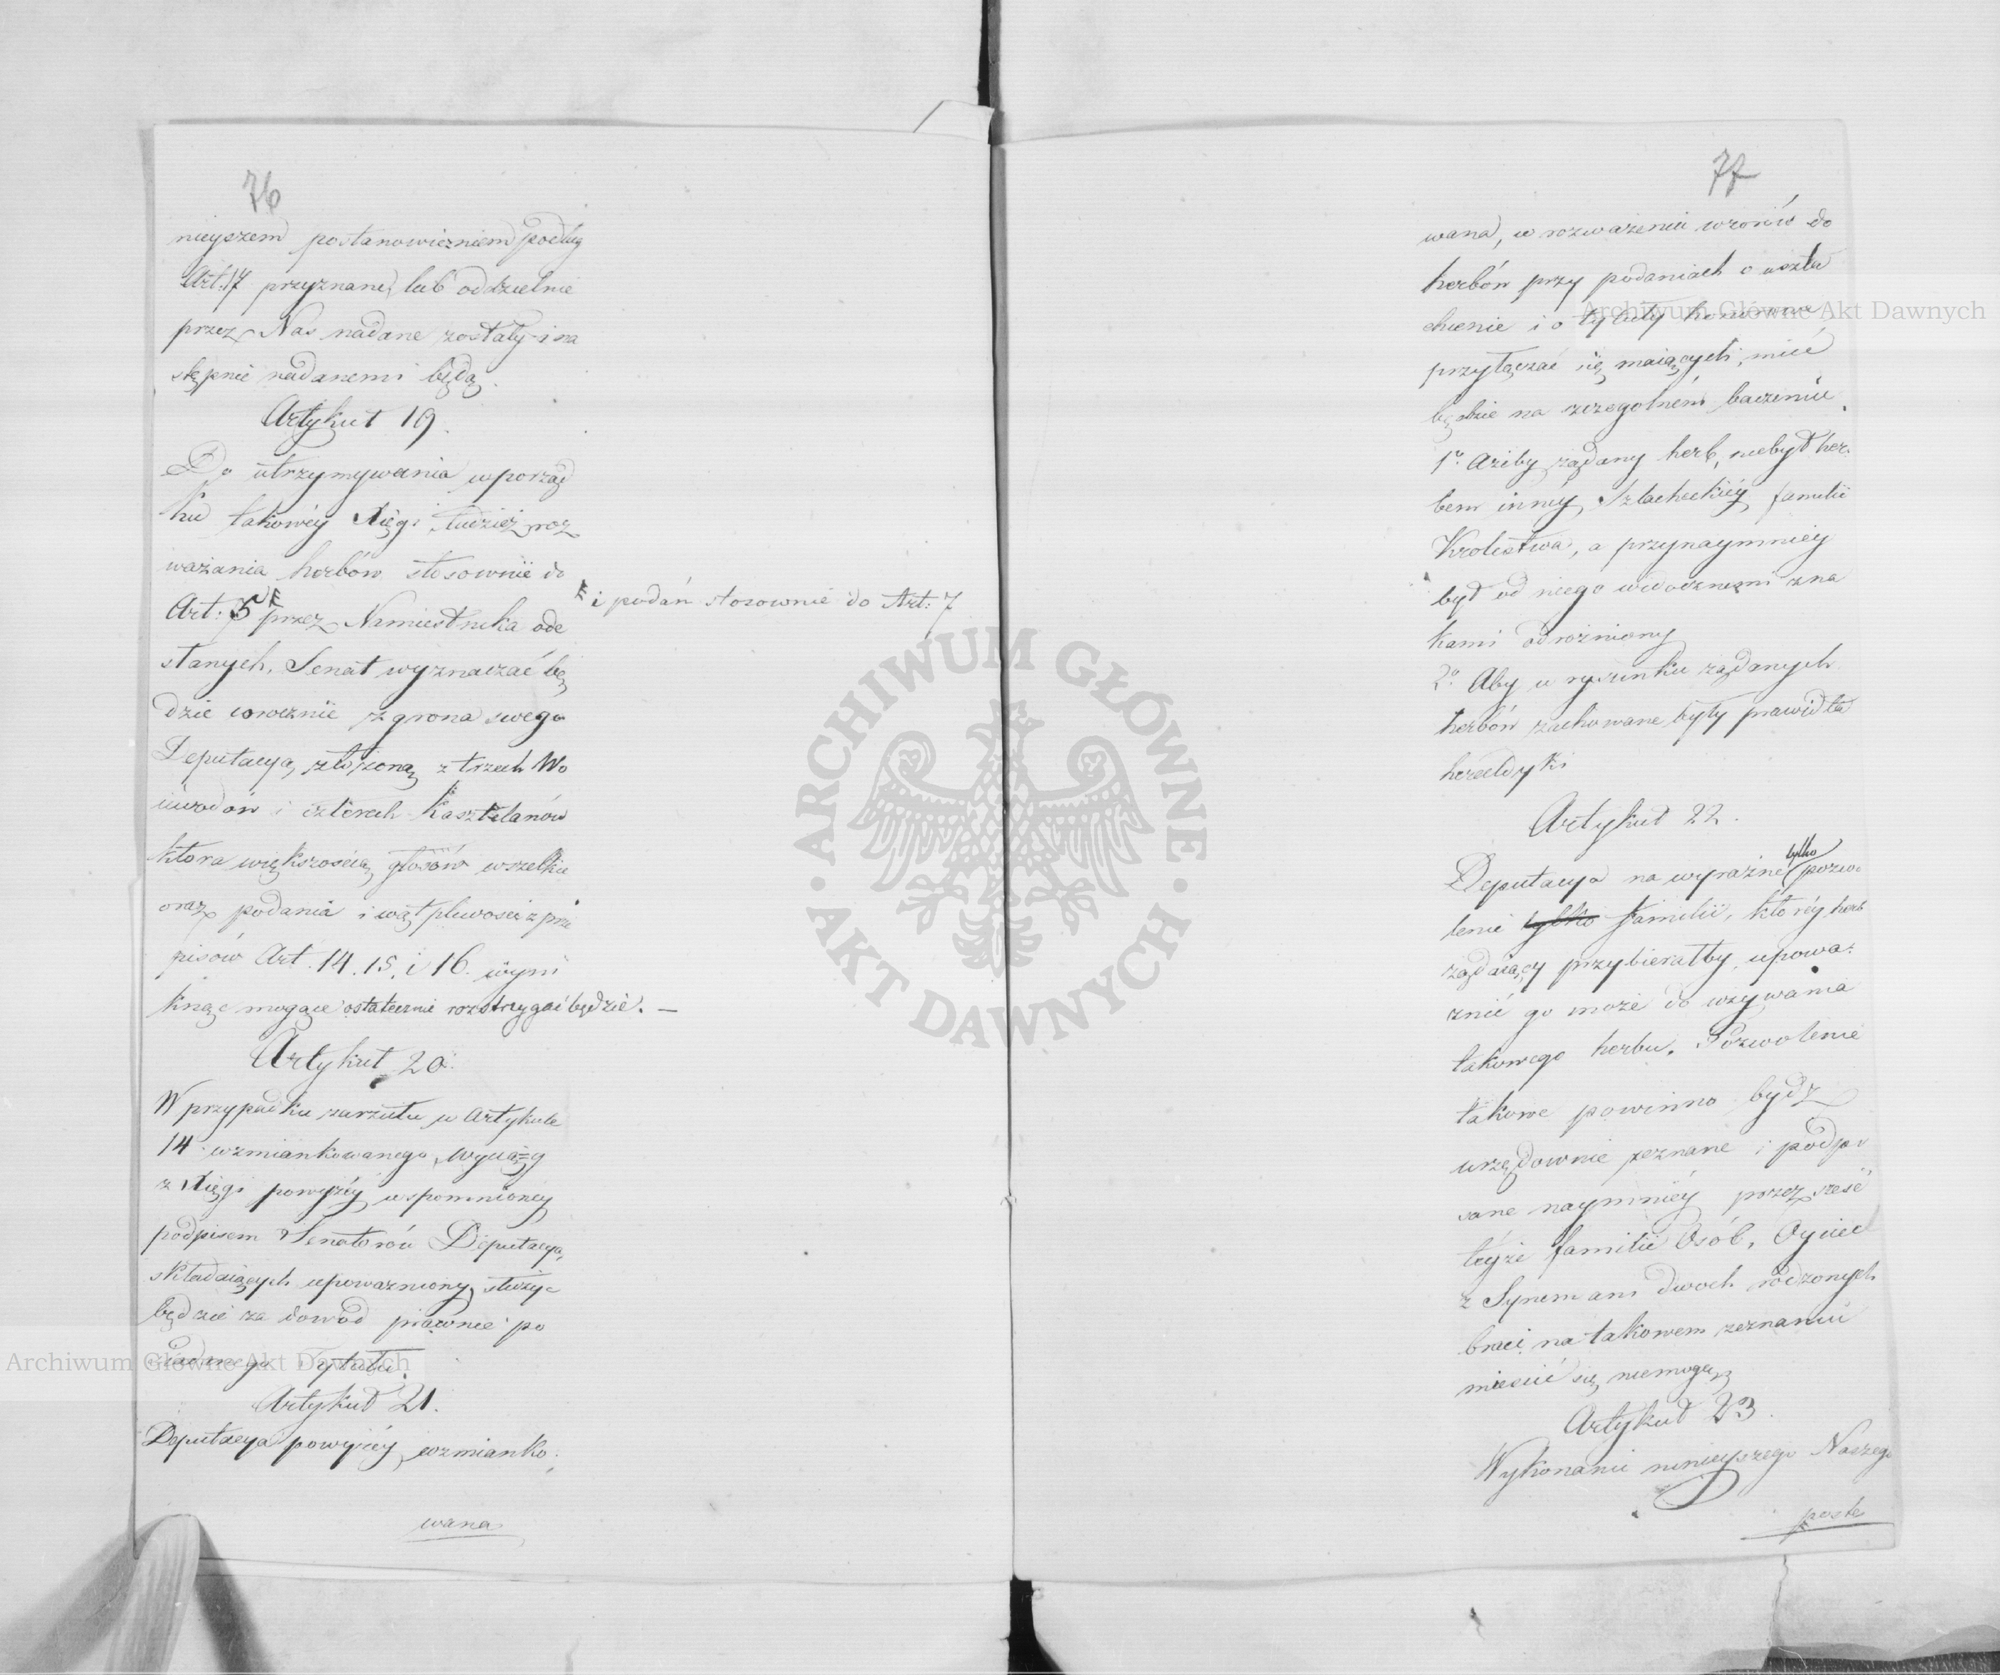 76
nieyszem postanowieniem podług
Art: 17 przyznane, lub oddzielnie
przez Nas nadane zostały i na
stępnie nadanemi będą.
Artykuł 19.
Do utrzymywania w porząd
ku takowéy Xięgi tudzież roz
ważania herbów stosownie do
Art: 5 przez Namiestnika ode
i podań stosownie do Art: 7
słanych, Senat wyznaczać bę
dzie corocznie z grona swego
Deputacyą złożoną z trzech Wo
iewodów i czterech Kasztelanów
która większością głosów wszelkie
oraz podania i wątpliwości z prze
pisów Art. 14. 15. i 16. wyni
knąć mogące ostatecznie rozstrzygać będzie. —
Artykuł 20.
W przypadku zarzutu w Artykule
14 wzmiankowanego, wyciąg
z Xięgi powyżéy wspomnioney
podpisem Senatorów Deputacyą
składaiących upoważniony, służyć
będzie za dowód prawnie po
siadanego Tytułu.
Artykuł 21.
Deputacya powyżéy wzmianko:
wana
77
wana, w rozważeniu wzorów do
herbów przy podaniach o uszla
chcenie i o tytuły honorowe
przyłączać się maiących, mieć
będzie na szczegolném baczeniu.
1o. Ażeby żądany herb, niebył her:
bem innéy Szlacheckiéy familii
Krolestwa, a przynaymniey
był od niego widocznemi zna
kami odrożniony
2o. Aby w rysunku żądanych
herbów zachowane były prawidła
heraldyki
Artykuł 22.
Deputacya na wyraźne tylko pozwo:
lenie tylko familii, któréy herb
żądaiący przybierałby, upowa:
żnić go może do używania
takowego herbu. Pozwolenie
takowe powinno bydz
urzędownie zeznane i podpi
sane naymniéy przez sześć
téyże familii Osób, Oyciec
z Synem ani dwoch rodzonych
braci na takowem zeznaniu
mieścić się niemogą
Artykuł 23.
Wykonanie ninieyszego Naszego
posta
Archiwum Główne Akt Dawnych
Archiwum Główne Akt Dawnych
ARCHIWUM GŁÓWNE
AKT DAWNYCH